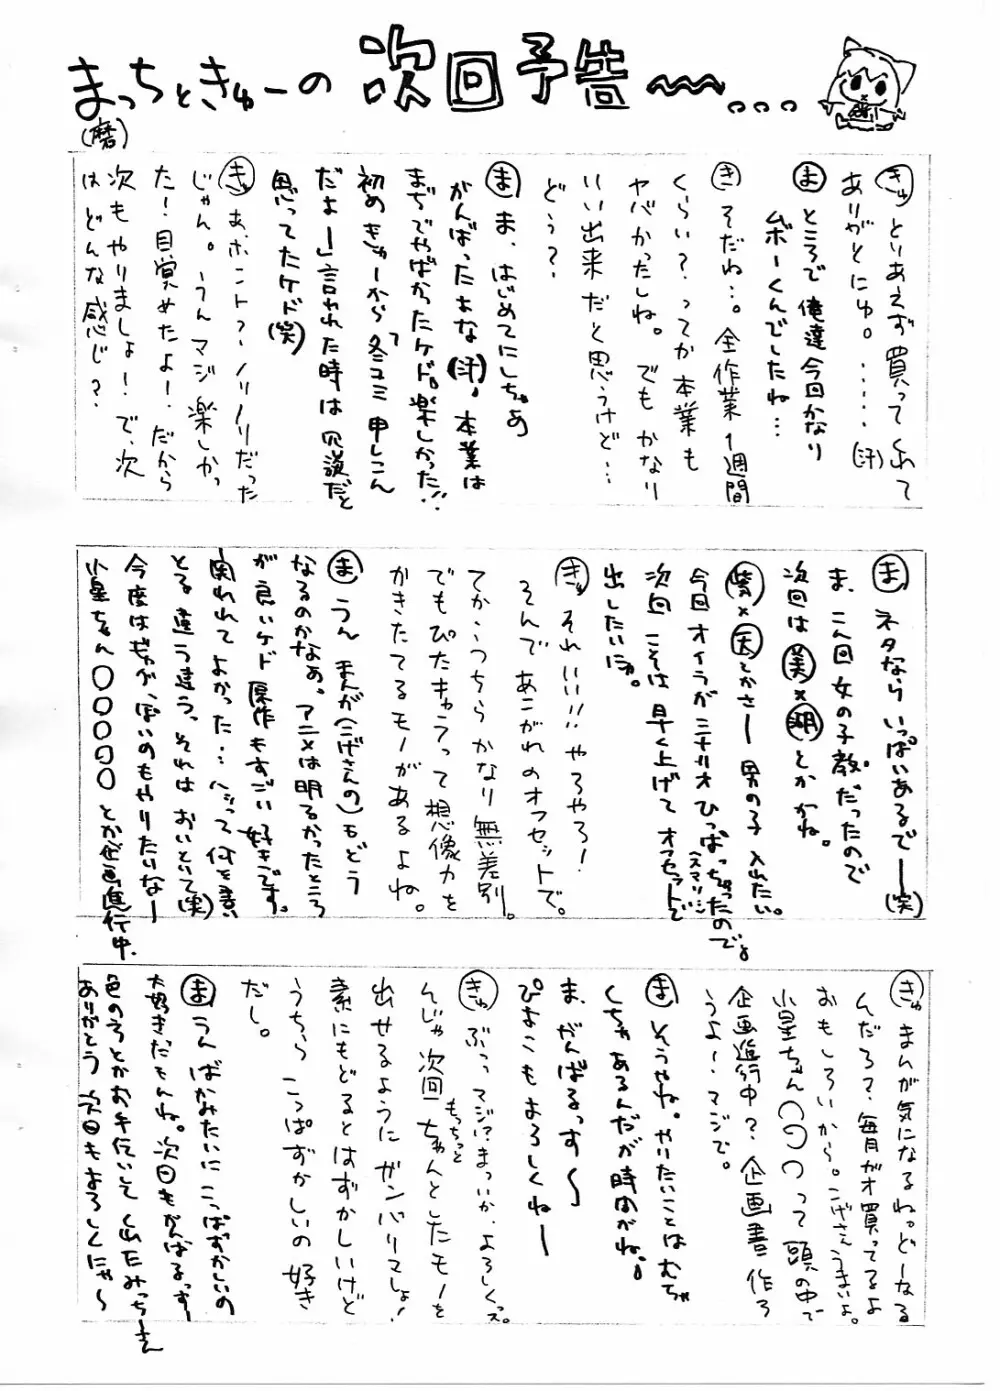 まっちときゅーの 次回予告〜…
(磨)
きゅ とりあえず買ってくれて
ありがとにゅ。……(汗)
ま ところで俺達今回かなり
ムボーくんでしたね…
き そだね…。全作業1週間
くらい?ってか本業も
ヤバかったしね。でもかなり
いい出来だと思うけど…
どぅ?
ま ま、はじめてにしちゃあ
がんばったよな(汗)本業は
まぢでやばかったケド。楽しかった!
初めきゅーから「冬コミ申しこん
だよー」言われた時は冗談だと
思ってたケド(笑)
きゅ あ、ホント?ノリノリだった
じゃん。うんマジ楽しかっ
た!目覚めたよー!だから
次もやりましょ!で、次
はどんな感じ?
ま ネタならいっぱいあるでー(笑)
ま、こん回女の子ばっかだったので
次回は美×湖とかかね。
紫×天とかさー男の子入れたい。
今回オイラがシナリオひっぱっちゃったので
(スマソ)
次回こそは早く上げてオフセットで
出したいにゅ。
きゅ それいい!!!やろやろ!
そんであこがれのオフセットで。
てか、うちらかなり無差別。
でもぴたキュラって想像力を
かきたてるモノがあるよね。
ま うん まんが(こげさんの)もどう
なるのかなあ。アニメは明るかったところ
が良いケド原作もすごい好きです。
買われてよかった…へって何を言い
とる違う違う。それはおいといて(笑)
今度はギャグっぽいのもやりたいなー
小星ちゃん○○○○とか企画進行中.
きゅ まんが気になるね。どーなる
んだろ?毎月がオ買ってるよ
おもしろいから。こげさんうまいよ。
小星ちゃん○○○○って頭の中で
企画進行中?企画書作ろ
うよー、マジで。
ま そうやね。やりたいことはむちゃ
くちゃあるんだが時間がね。
ま、がんばるっす〜
ぴよこもよろしくねー
きゅ ぶっっマジ!?まっいか、よろしくっス。
んじゃ次回もちっとちゃんとしたモノを
出せるようにガンバリマしょ!
素にもどるとはずかしいけど
うちら こっぱずかしいの好き
だし。
ま うん ばかみたいにこっぱずかしいの
大好きだもんね。次回もがんばるっすー
色のろとかお手伝いしてくれたみっちーさん
ありがとう 次回もよろしくにゃ〜